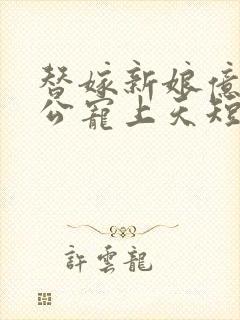 替嫁新娘億
公寵上天短
許雲龍